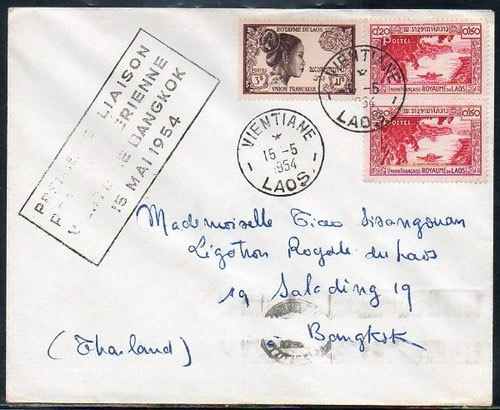 LIAISON
BANGKOK
15 MAI 1954
ROYAUME DU LAOS
POSTES
3F
UNION FRANÇAISE
VIENTIANE
-5
1954
LAOS
0$20 0$60
POSTES
UNION FRANÇAISE ROYAUME DU LAOS
0$60
POSTES
UNION FRANÇAISE ROYAUME DU LAOS
VIENTIANE
15 -5
1954
LAOS
Mademoiselle Tiao Sisangouan
Légation Royale du Laos
19 Salading 19
à Bangkok
(Thaïland)